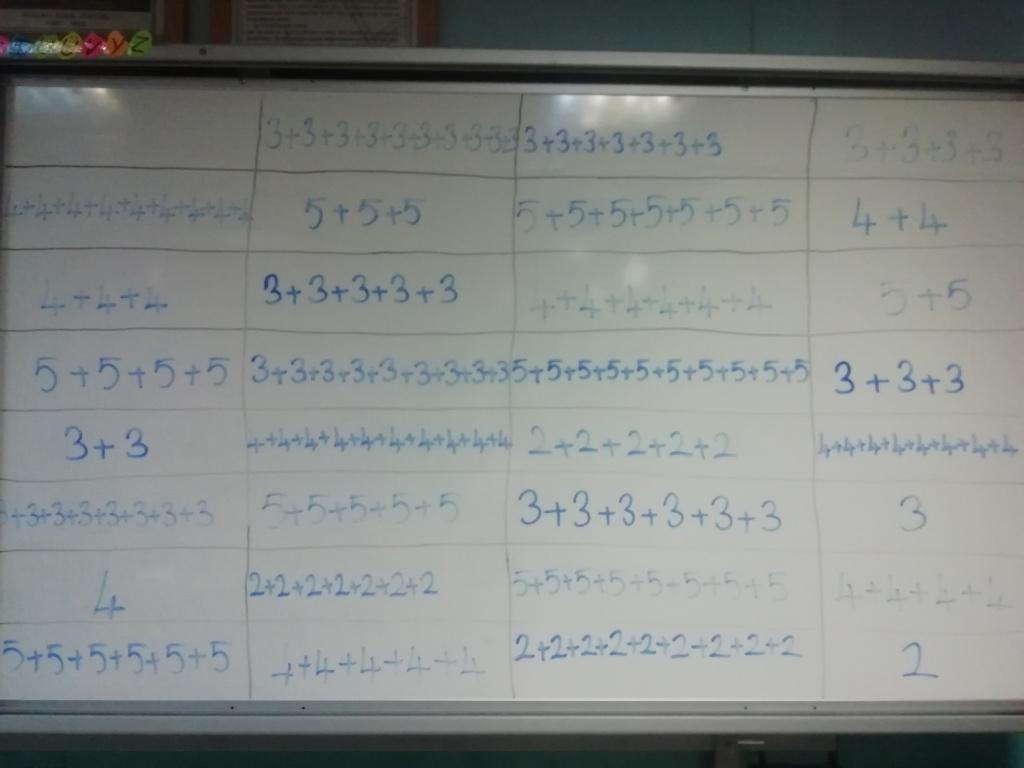 3+3+3+3+3+3+3+3+3+3 3+3+3+3+3+3+3 3+3+3+3
4+4+4+4+4+4+4+4+4 5+5+5 5+5+5+5+5+5+5 4+4
4+4+4 3+3+3+3+3 4+4+4+4+4+4 5+5
5+5+5+5 3+3+3+3+3+3+3+3+3 5+5+5+5+5+5+5+5+5+5 3+3+3
3+3 4+4+4+4+4+4+4+4+4+4 2+2+2+2+2 4+4+4+4+4+4+4+4
3+3+3+3+3+3+3+3 5+5+5+5+5 3+3+3+3+3+3 3
4 2+2+2+2+2+2+2 5+5+5+5+5+5+5+5+5 4+4+4+4
5+5+5+5+5+5 4+4+4+4+4 2+2+2+2+2+2+2+2+2 2